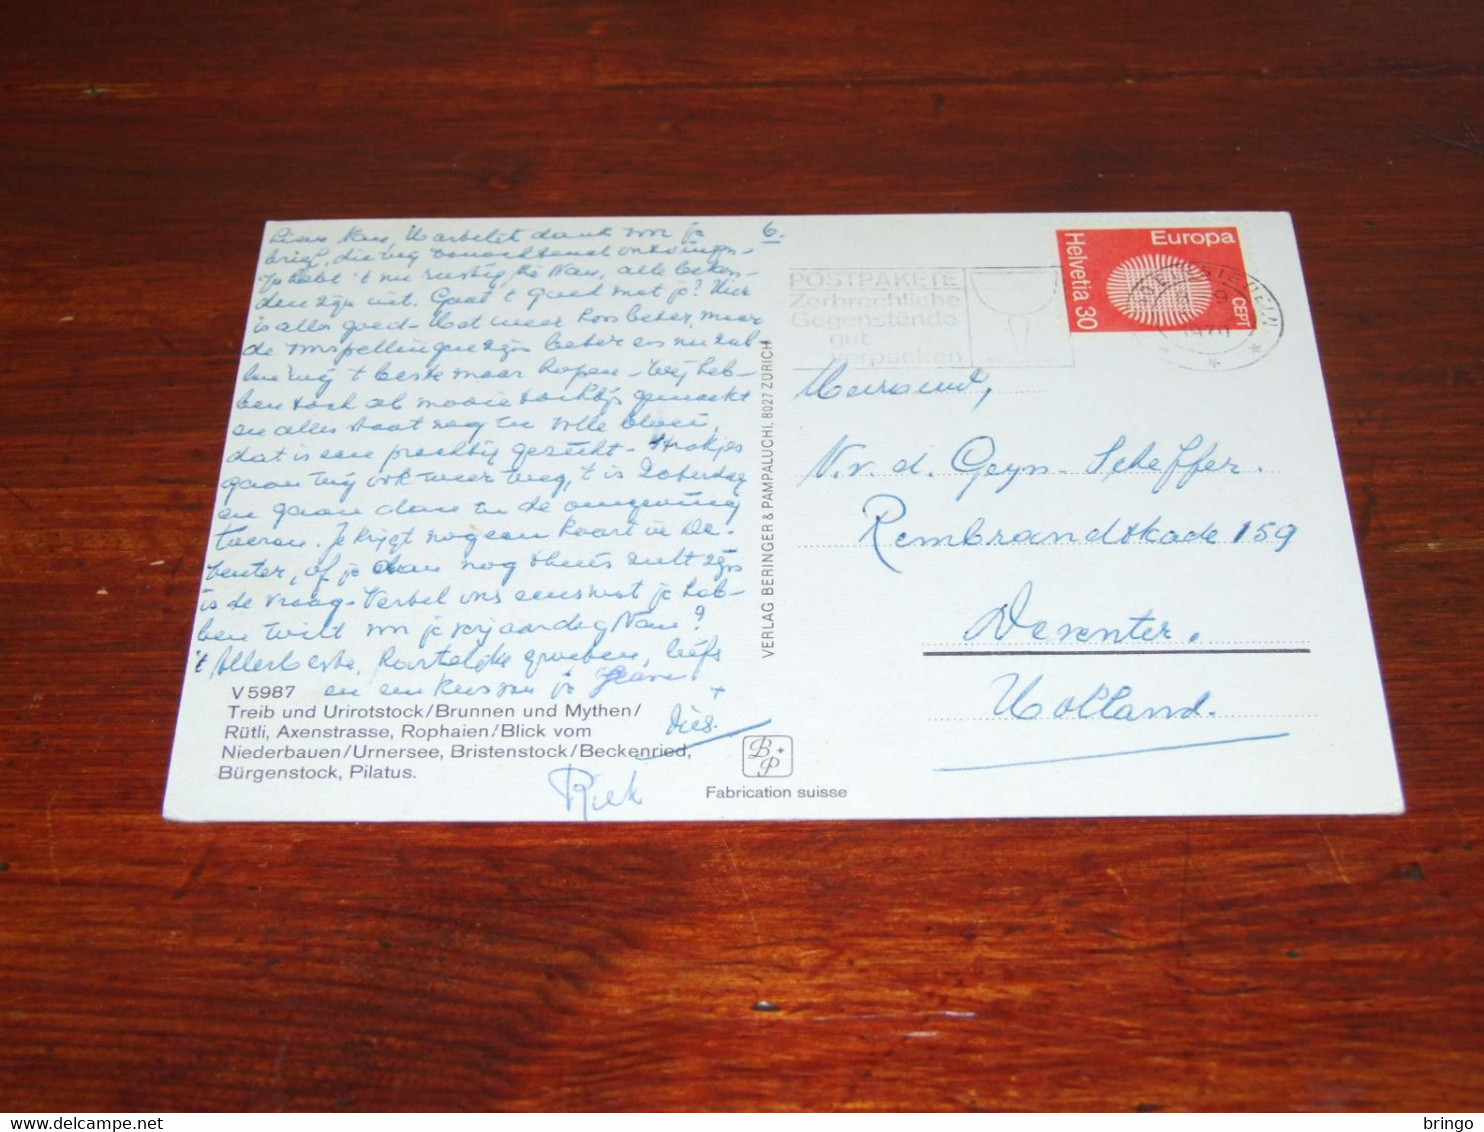 6.
Lieve Nan, Hartelijk dank voor je
brief, die wij vanochtend ontvingen.
Je hebt 't nu rustig hè Nan, alle beken-
den zijn uit. Gaat 't goed met je? Hier
is alles goed. Het weer kon beter, maar
de voorspellingen zijn beter en nu
't beste maar hopen. Wij heb-
ben toch al mooie tochtjes gemaakt
en alles staat nog in volle bloei,
dat is een prachtig gezicht.
gaan wij ook weer weg, 't is Zaterdag
en gaan dan in de omgeving
toeren. Je krijgt nog een kaart in De-
venter, of je dan nog thuis zult zijn
is de vraag. Vertel ons eens wat je heb-
ben wilt voor je verjaardag Nan?
't Allerbeste, hartelijke groeten, liefs
en een kus van je
Dies.
Riek
V 5987
Treib und Urirotstock/Brunnen und Mythen/
Rütli, Axenstrasse, Rophaien/Blick vom
Niederbauen/Urnersee, Bristenstock/Beckenried,
Bürgenstock, Pilatus.
VERLAG BERINGER & PAMPALUCHI, 8027 ZÜRICH
B + P
Fabrication suisse
POSTPAKETE
Zerbrechliche
Gegenstände
gut
verpacken
Europa
Helvetia 30
CEPT
1970
Mevrouw,
N. v. d. Geyn-Scheffer.
Rembrandtkade 159
Deventer.
Holland.
bringo